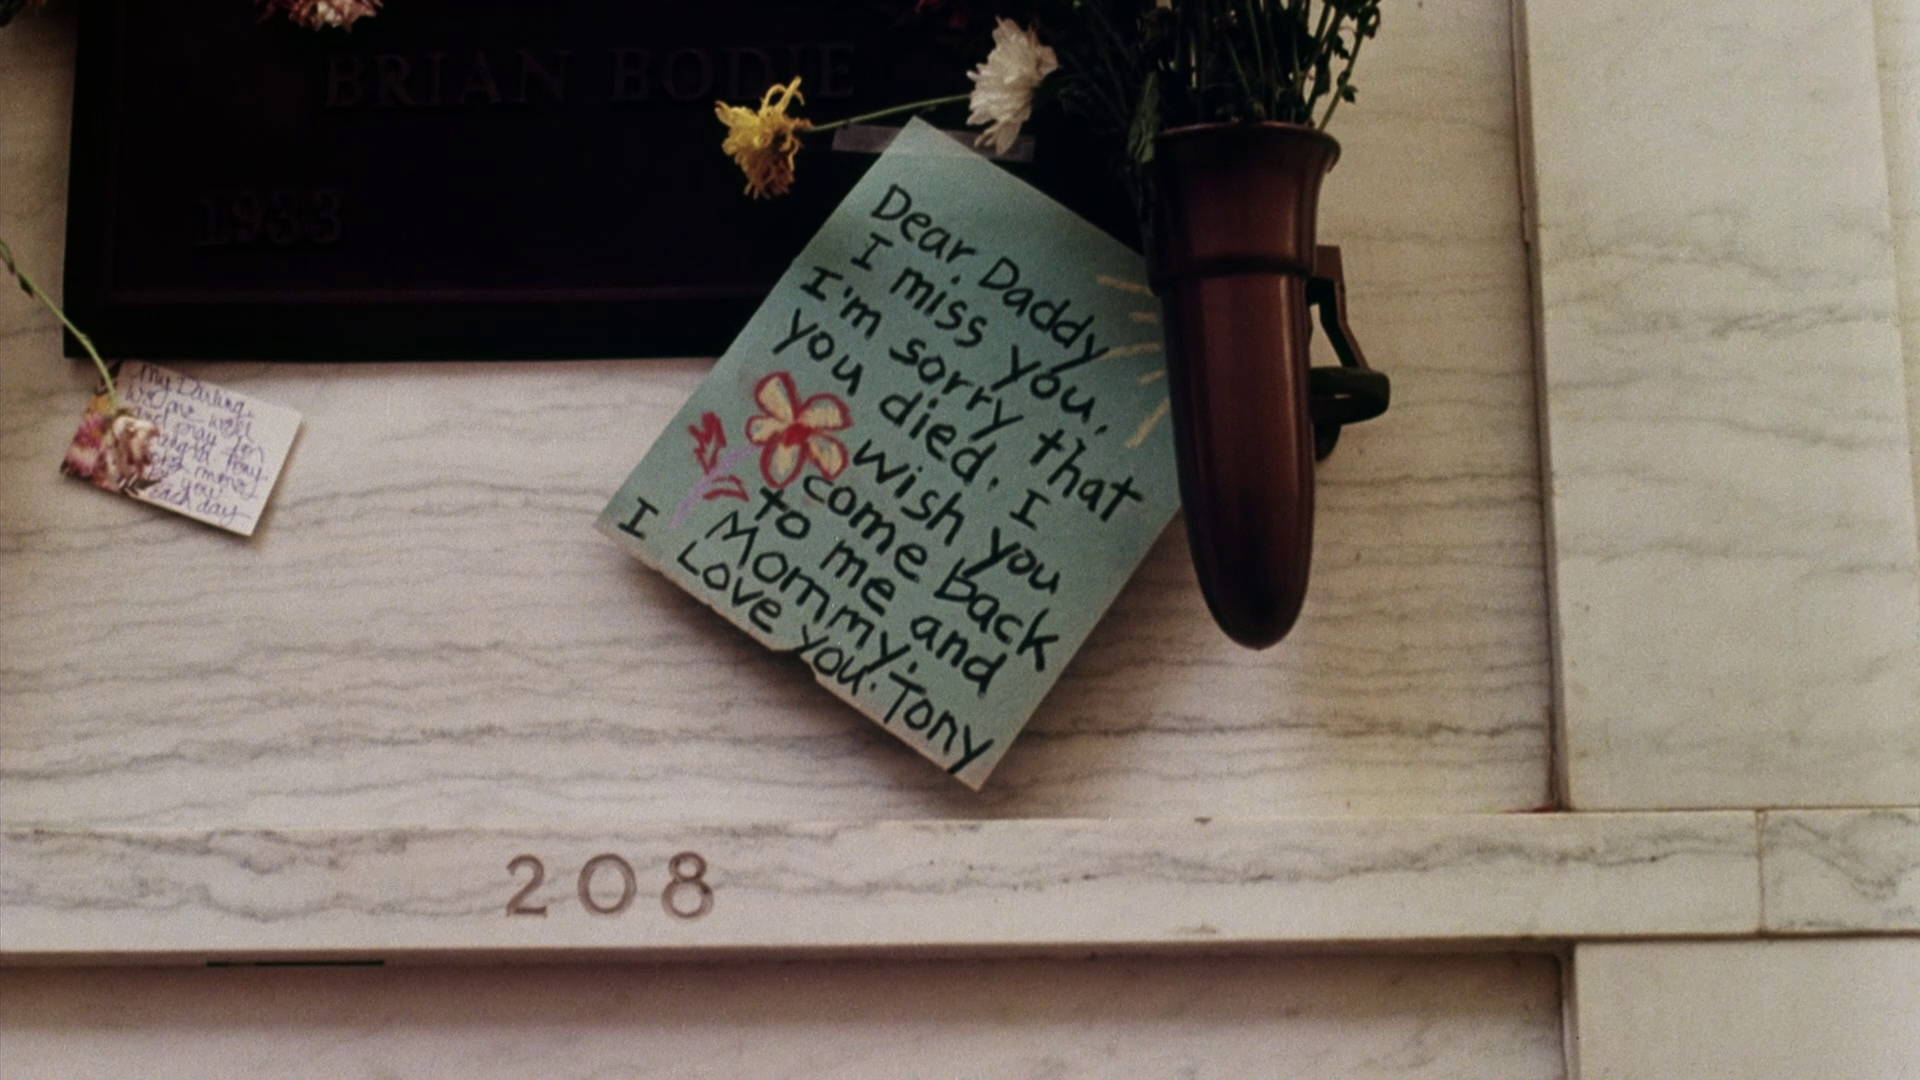 BRIAN BODIE
1933
Dear Daddy
I miss you.
I'm sorry that
you died. I
wish you
come back
to me and
Mommy.
I Love you. Tony
My Darling,
and pray for
you
each day
208